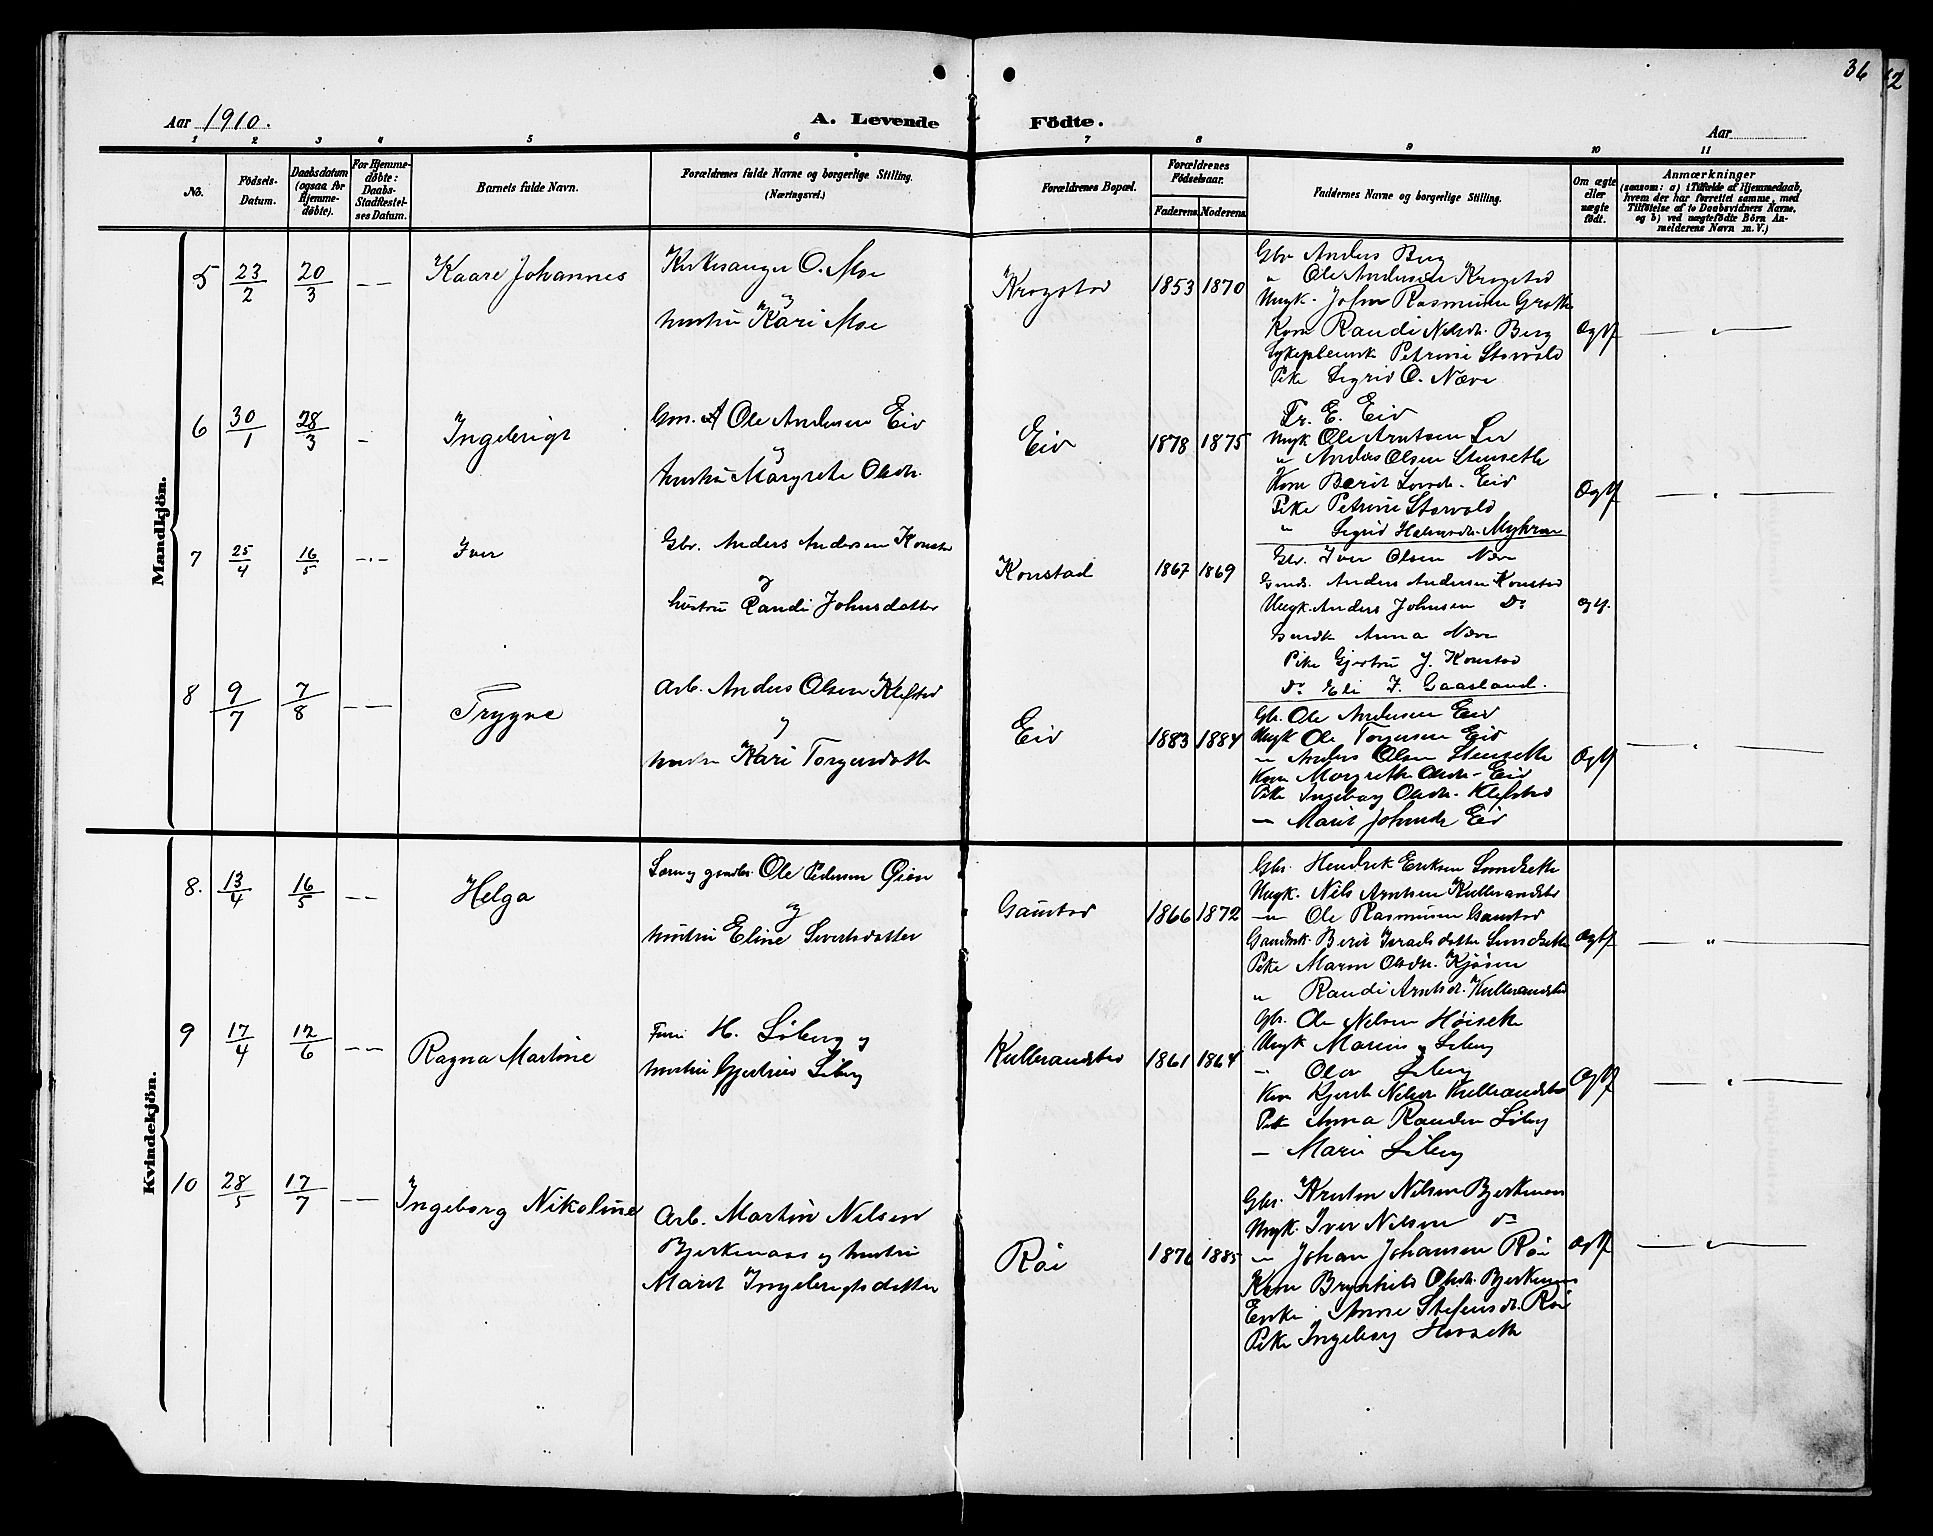 36
12
Aar 1910.
A. Levende Födte.
Aar
1 2 3 4 5 6 7 8 9 10 11
No.
Födsels-Datum.
Daabsdatum (ogsaa for Hjemme-döbte).
For Hjemme-döbte: Daabs-Stadfæstelses Datum.
Barnets fulde Navn.
Forældrenes fulde Navne og borgerlige Stilling. (Næringsvei.)
Forældrenes Bopæl.
Forældrenes Födselsaar.
Faderens. Moderens.
Faddernes Navne og borgerlige Stilling.
Om ægte eller uægte födt.
Anmærkninger (saasom: a) i Tilfælde af Hjemmedaab, hvem der har forrettet samme, med Tilföielse af to Daabsvidners Navne, og b) ved uægtefödte Börn Anmelderens Navn m. V.)
Mandkjön.
5 23/2 20/3 — — Kaare Johannes
Kirkesanger O. Moe
og
hustru Kari Moe
Krogstad 1853 1870
Gbr Anders Berg
" Ole Andersen Krogstad
Ungk. John Rasmussen
Kone Randi Nelsdr. Berg
Petrine Storvold
Pike Sigrid O. Næve
Ægtf — " —
6 30/1 28/3 — Ingebrigt
Gm. Ole Andersen Eid
og
hustru Margrete Olsdr.
Eid 1878 1875
Fr. E. Eid
Ungk Ole Arntsen Ler
" Anders Olsen Stenseth
Kone Berit Eid
Pike Petrine Storvold
" Sigrid Myhren
Ægtf — " —
7 25/4 16/5 — · — Iver
Gbr. Anders Andersen Konstad
og
hustru Randi Johnsdatter
Konstad 1867 1869
Gbr. Iver Olsen Næve
Anders Andersen Konstad
Ungk. Anders Johnsen Do
Anna Næve
Pike Gjertru J. Konstad
Do Eli J. Gaasland.
ægtf.
8 9/7 7/8 — — Trygve
Arb. Anders Olsen Klefstad
og
hustru Kari Torgersdatter
Eid 1883 1884
Gbr. Ole Andersen Eid
Ungk Ole Torgersen Eid
— Anders Olsen Stenseth
Kone Margrethe Olsdr. Eid
Pike Ingeborg Olsdr. Klefstad
— Marit Johnsdr Eid
Ægtf — " —
Kvindekjön.
8. 13/4 16/5 — — Helga
Ole Pedersen Øien
og
hustru Eline Sivertsdatter
Gaustad 1866 1872
Gbr. Hendrik Eriksen Sundseth
Ungk. Nils Arntsen Kulbrandstad
— Ole Rasmussen Gaustad
Berit Israelsdatter Sundseth
Pike Maren Olsdr. Kjösen
" Randi Arntsdr. Kulbrandstad
Ægtf — " —
9 17/4 12/6 — — Ragna Martine
H. Siberg og
hustru Gjertrud Siberg
Kulbrandstad 1861 1864
Gbr. Ole Nelsen Höiseth
Ungk Marius Siberg
" Olav Siberg
Kone Nelsdr Kulbrandstad
Pike Anna Siberg
— Marie Siberg
Ægtf — " —
10 28/5 17/7 — — Ingeborg Nikoline
Arb. Martin Nilsen
Bjerkenaas og hustru
Marit Ingebrigtsdatter
Röi 1876 1885
Gbr. Kristen Nilsen Bjerkenaas
Ungk. Iver Nilsen do
— Johan Johansen Röi
Kone Brynhild Olsdr. Bjerkenaas
Enke Anne Stefensdr. Röi
Pike Ingeborg
Ægtf — " —